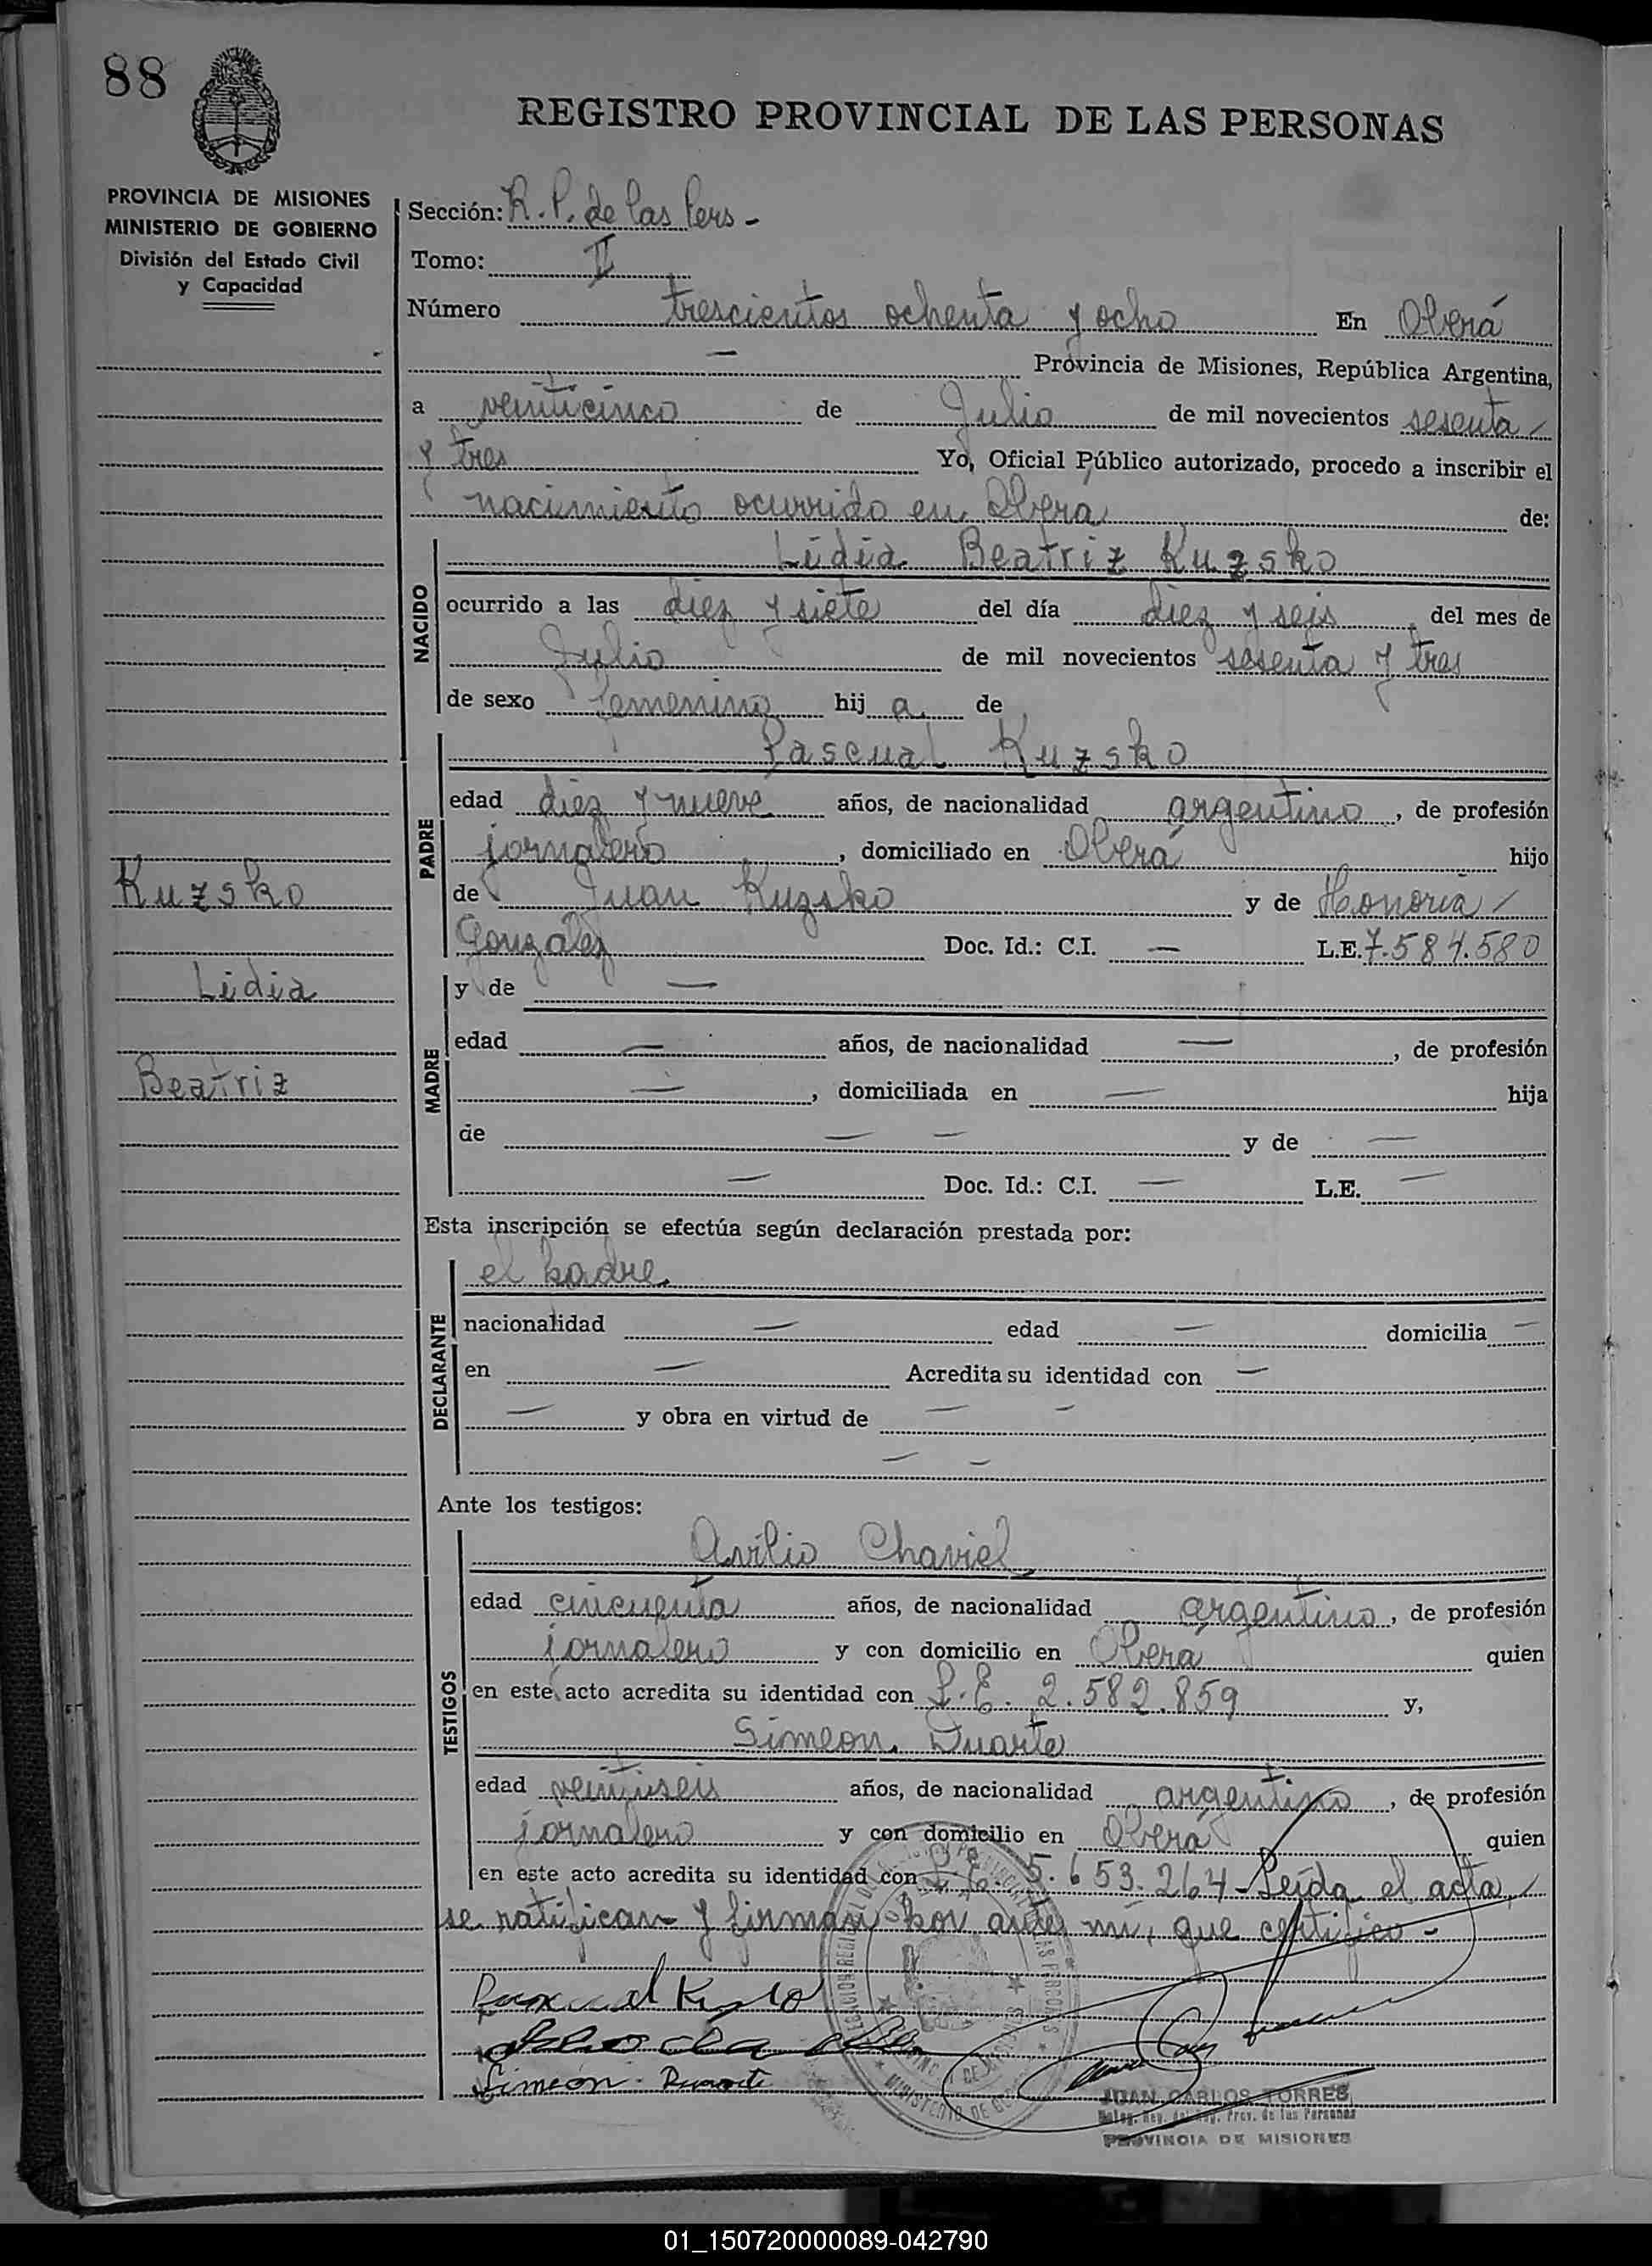 88
REGISTRO PROVINCIAL DE LAS PERSONAS
PROVINCIA DE MISIONES
MINISTERIO DE GOBIERNO
División del Estado Civil
y Capacidad
Sección: R. P. de las Pers -
Tomo: II
Número trescientos ochenta y ocho En Oberá
— Provincia de Misiones, República Argentina,
a veinticinco de Julio de mil novecientos sesenta /
y tres Yo, Oficial Público autorizado, procedo a inscribir el
nacimiento ocurrido en Obera de:
NACIDO
Lidia Beatriz Kuzsko
ocurrido a las diez y siete del día diez y seis del mes de
Julio de mil novecientos sesenta y tres
de sexo femenino hij a de
PADRE
Pascual Kuzsko
edad diez y nueve años, de nacionalidad argentino, de profesión
jornalero, domiciliado en Oberá hijo
de Juan Kuzsko y de Honoria /
González Doc. Id.: C.I. — L.E. 7.584.580
Kuzsko
Lidia
Beatriz
MADRE
y de —
edad — años, de nacionalidad —, de profesión
—, domiciliada en — hija
de — — y de —
— Doc. Id.: C.I. — L.E. —
Esta inscripción se efectúa según declaración prestada por:
DECLARANTE
el padre
nacionalidad — edad — domicilia —
en — Acredita su identidad con —
— y obra en virtud de — —
— —
Ante los testigos:
TESTIGOS
Avilio Chaviel
edad cincuenta años, de nacionalidad argentino, de profesión
jornalero y con domicilio en Oberá quien
en este acto acredita su identidad con L.E. 2.582.859 y,
Simeon Duarte
edad veintiseis años, de nacionalidad argentino, de profesión
jornalero y con domicilio en Oberá quien
en este acto acredita su identidad con L.E. 5.653.264 - Leída el acta,
se ratifican y firman por ante mí, que certifico -
Simeón Duarte
JUAN CARLOS TORRES
PROVINCIA DE MISIONES
01_150720000089-042790